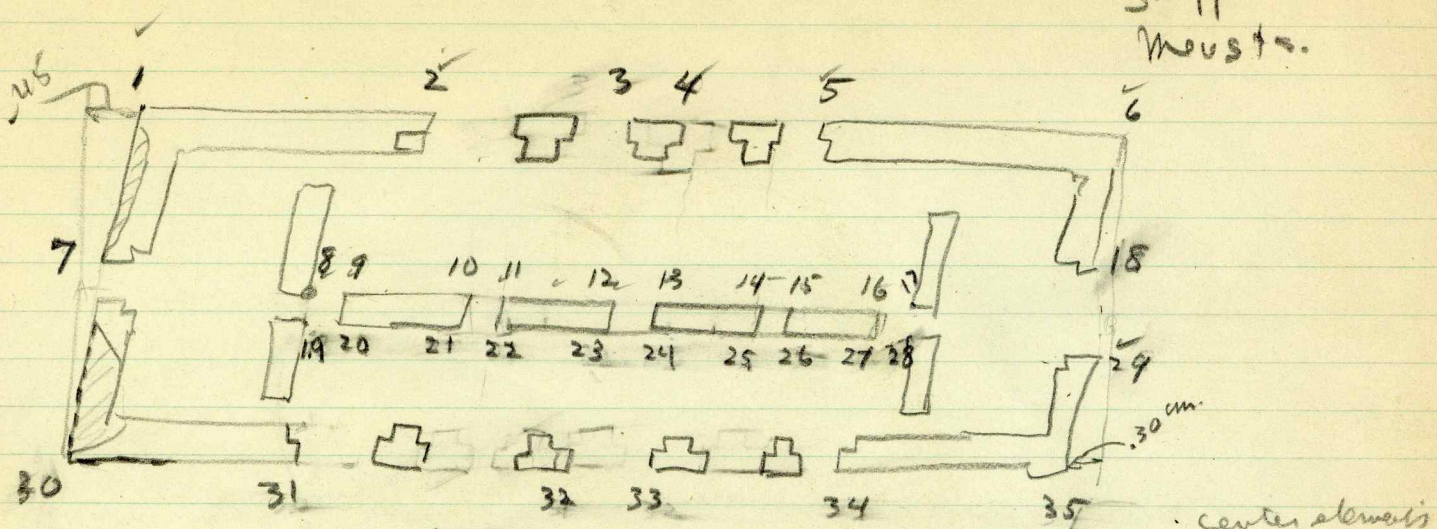 Mousta.
.45
1 2 3 4 5 6
7 8 9 10 11 12 13 14 15 16 17 18
19 20 21 22 23 24 25 26 27 28 29
.30 cm.
30 31 32 33 34 35
center elements